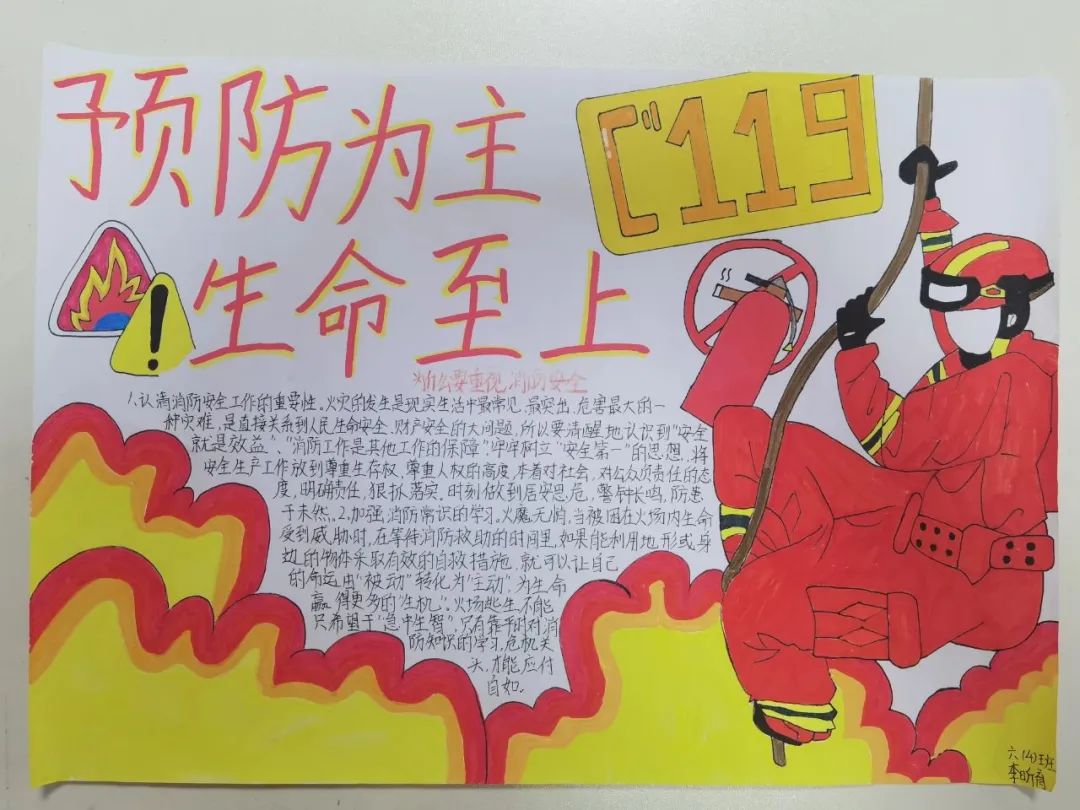 预防为主
生命至上
119
为什么要重视消防安全
1、认清消防安全工作的重要性。火灾的发生是现实生活中最常见、最突出、危害最大的一
种灾难，是直接关系到人民生命安全、财产安全的大问题，所以要清醒地认识到"安全
就是效益"、"消防工作是其他工作的保障"。牢牢树立"安全第一"的思想，将
安全生产工作放到尊重生存权、尊重人权的高度，本着对社会、对公众负责任的态
度，明确责任，狠抓落实，时刻做到居安思危，警钟长鸣，防患
于未然。2、加强消防常识的学习。火魔无情，当被困在火场内生命
受到威胁时，在等待消防救助的时间里，如果能利用地形或身
边的物体采取有效的自救措施，就可以让自己
的命运由"被动"转化为"主动"，为生命
赢得更多的"生机"。火场逃生不能
只希望于"急中生智"，只有靠平时对消
防知识的学习，危机关
头，才能应付
自如。
六（4）班
李昕